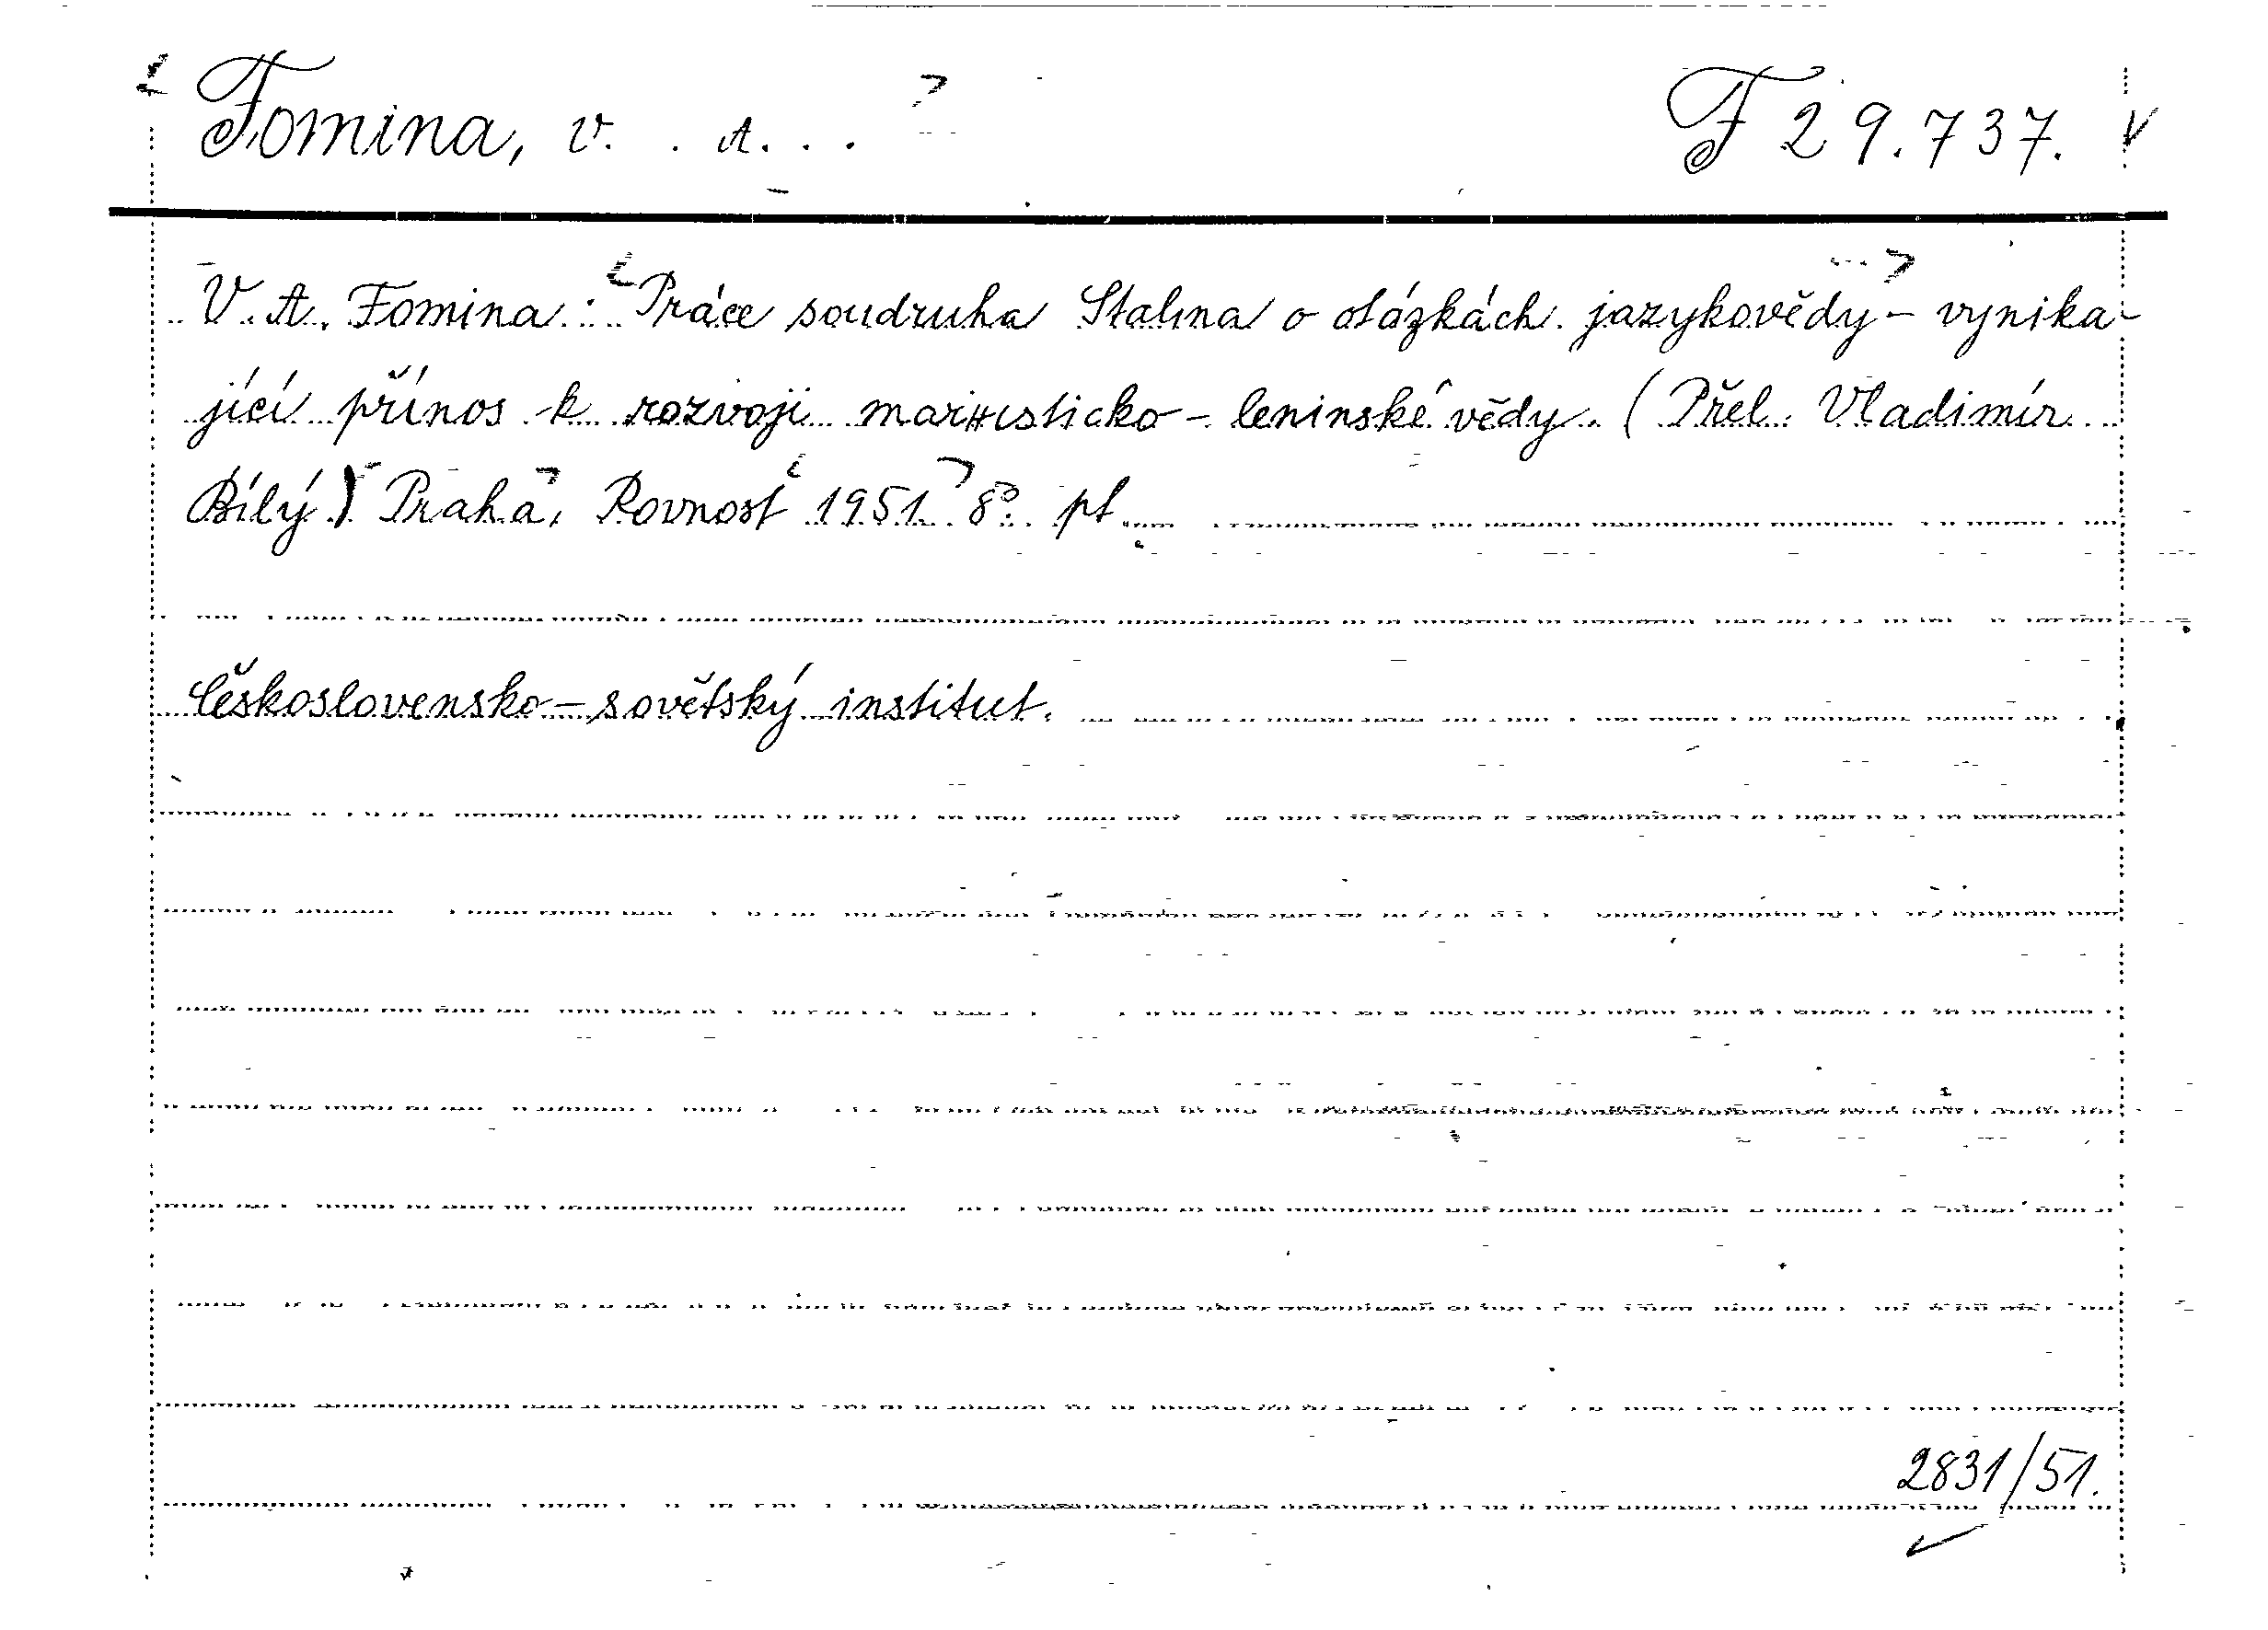 Fomina, V. A...
F 29.737. V
V. A. Fomina: Práce soudruha Stalina o otázkách jazykovědy - vynika-
jící přínos k rozvoji marxisticko-leninské vědy. (Přel. Vladimír
Bílý) Praha, Rovnost 1951. 8°. pt.
Československo-sovětský institut.
2831/51.